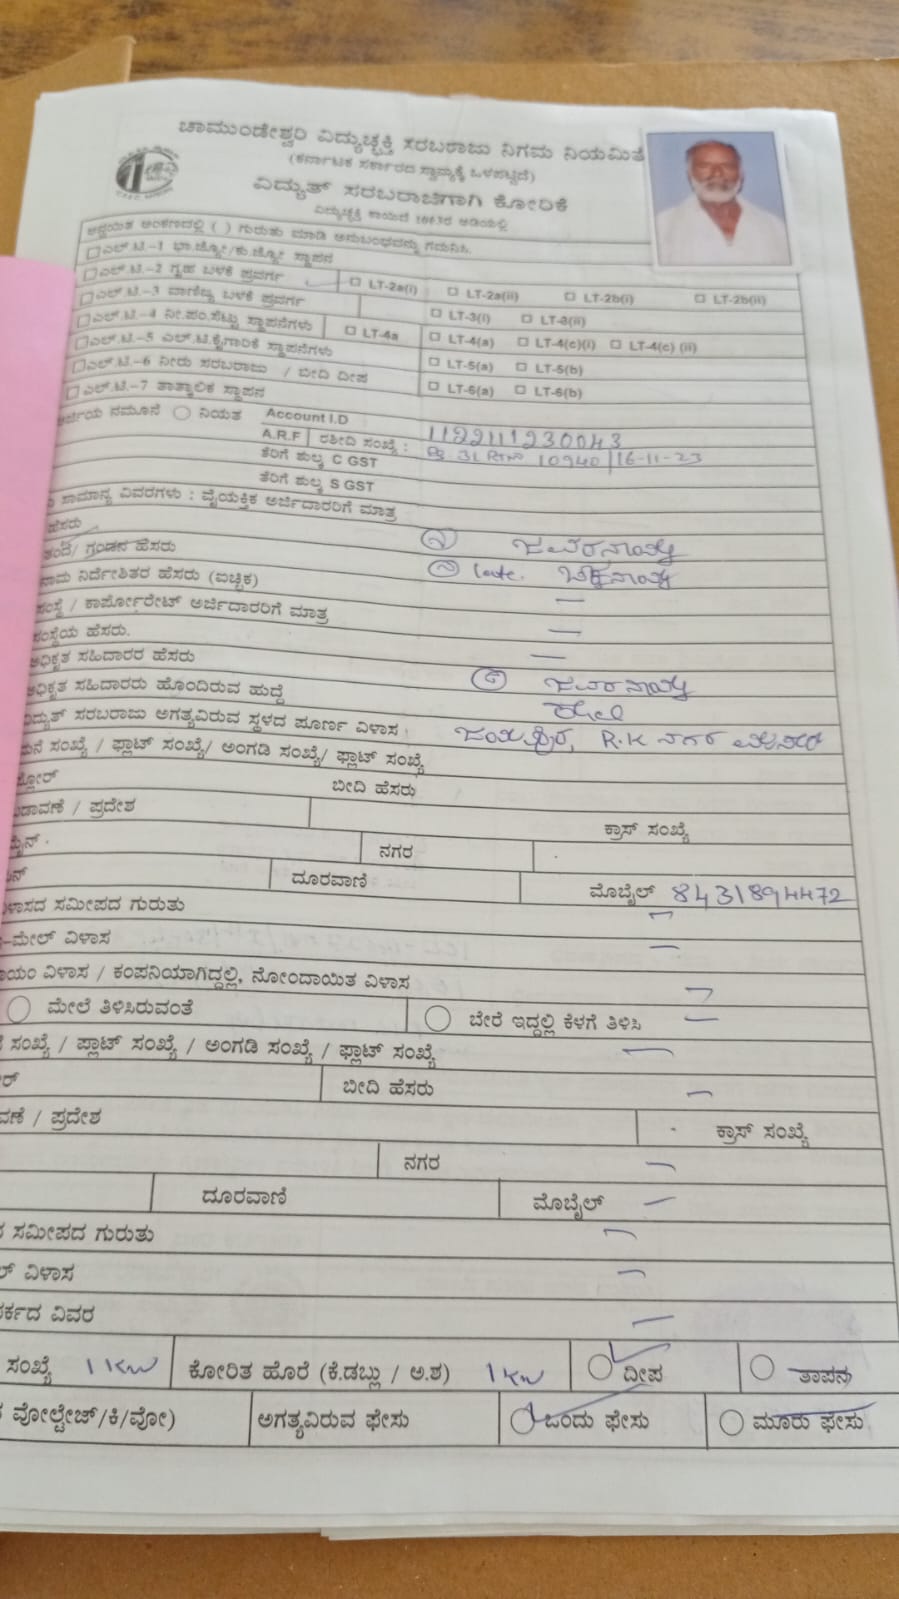 ಚಾಮುಂಡೇಶ್ವರಿ ವಿದ್ಯುಚ್ಛಕ್ತಿ ಸರಬರಾಜು ನಿಗಮ ನಿಯಮಿತ
(ಕರ್ನಾಟಕ ಸರ್ಕಾರದ ಸ್ವಾಮ್ಯಕ್ಕೆ ಒಳಪಟ್ಟಿದೆ)
ವಿದ್ಯುತ್ ಸರಬರಾಜಿಗಾಗಿ ಕೋರಿಕೆ
ವಿದ್ಯುಚ್ಛಕ್ತಿ ಕಾಯಿದೆ ಅಡಿಯಲ್ಲಿ
ಅಂಕಣದಲ್ಲಿ ( ) ಗುರುತು ಮಾಡಿ ಅನುಬಂಧವನ್ನು ಗಮನಿಸಿ.
ಎಲ್.ಟಿ-1 ಭಾ.ಜ್ಯೋ/ಕು.ಜ್ಯೋ ಸ್ಥಾಪನ
ಎಲ್.ಟಿ-2 ಗೃಹ ಬಳಕೆ ಪ್ರವರ್ಗ LT-2a(i) LT-2a(ii) LT-2b(i) LT-2b(ii)
ಎಲ್.ಟಿ-3 ವಾಣಿಜ್ಯ ಬಳಕೆ ಪ್ರವರ್ಗ LT-3(i) LT-3(ii)
ಎಲ್.ಟಿ-4 ನೀ.ಪಂ.ಸೆಟ್ಟು ಸ್ಥಾಪನೆಗಳು LT-4a LT-4(a) LT-4(c)(i) LT-4(c) (ii)
ಎಲ್.ಟಿ-5 ಎಲ್.ಟಿ.ಕೈಗಾರಿಕೆ ಸ್ಥಾಪನೆಗಳು LT-5(a) LT-5(b)
ಎಲ್.ಟಿ-6 ನೀರು ಸರಬರಾಜು / ಬೀದಿ ದೀಪ LT-6(a) LT-6(b)
ಎಲ್.ಟಿ-7 ತಾತ್ಕಾಲಿಕ ಸ್ಥಾಪನ
ಅರ್ಜಿಯ ನಮೂನೆ ನಿಯತ Account I.D
A.R.F ರಶೀದಿ ಸಂಖ್ಯೆ : 1122111230043
ತೆರಿಗೆ ಶುಲ್ಕ C GST 10940 16-11-23
ತೆರಿಗೆ ಶುಲ್ಕ S GST
ಸಾಮಾನ್ಯ ವಿವರಗಳು : ವೈಯಕ್ತಿಕ ಅರ್ಜಿದಾರರಿಗೆ ಮಾತ್ರ
ಹೆಸರು
ತಂದೆ/ ಗಂಡನ ಹೆಸರು
ನಾಮ ನಿರ್ದೇಶಿತರ ಹೆಸರು (ಐಚ್ಛಿಕ) late.
ಸಂಸ್ಥೆ / ಕಾರ್ಪೋರೇಟ್ ಅರ್ಜಿದಾರರಿಗೆ ಮಾತ್ರ
ಸಂಸ್ಥೆಯ ಹೆಸರು.
ಅಧಿಕೃತ ಸಹಿದಾರರ ಹೆಸರು
ಅಧಿಕೃತ ಸಹಿದಾರರು ಹೊಂದಿರುವ ಹುದ್ದೆ
ವಿದ್ಯುತ್ ಸರಬರಾಜು ಅಗತ್ಯವಿರುವ ಸ್ಥಳದ ಪೂರ್ಣ ವಿಳಾಸ :
ಮನೆ ಸಂಖ್ಯೆ / ಫ್ಲಾಟ್ ಸಂಖ್ಯೆ/ ಅಂಗಡಿ ಸಂಖ್ಯೆ/ ಫ್ಲಾಟ್ ಸಂಖ್ಯೆ R.K ನಗರ
ಬೀದಿ ಹೆಸರು
ಬಡಾವಣೆ / ಪ್ರದೇಶ ಕ್ರಾಸ್ ಸಂಖ್ಯೆ
ನಗರ
ದೂರವಾಣಿ ಮೊಬೈಲ್ 8431894472
ವಿಳಾಸದ ಸಮೀಪದ ಗುರುತು
ಇ-ಮೇಲ್ ವಿಳಾಸ
ಖಾಯಂ ವಿಳಾಸ / ಕಂಪನಿಯಾಗಿದ್ದಲ್ಲಿ, ನೋಂದಾಯಿತ ವಿಳಾಸ
ಮೇಲೆ ತಿಳಿಸಿರುವಂತೆ ಬೇರೆ ಇದ್ದಲ್ಲಿ ಕೆಳಗೆ ತಿಳಿಸಿ
ಸಂಖ್ಯೆ / ಪ್ಲಾಟ್ ಸಂಖ್ಯೆ / ಅಂಗಡಿ ಸಂಖ್ಯೆ / ಫ್ಲಾಟ್ ಸಂಖ್ಯೆ
ಬೀದಿ ಹೆಸರು
ವಣೆ / ಪ್ರದೇಶ ಕ್ರಾಸ್ ಸಂಖ್ಯೆ
ನಗರ
ದೂರವಾಣಿ ಮೊಬೈಲ್
ಸಮೀಪದ ಗುರುತು
ಲ್ ವಿಳಾಸ
ರ್ಕದ ವಿವರ
ಸಂಖ್ಯೆ 1 KW ಕೋರಿತ ಹೊರೆ (ಕೆ.ಡಬ್ಲು / ಅ.ಶ) 1 KW ದೀಪ ತಾಪನ
ವೋಲ್ಟೇಜ್/ಕಿ/ವೋ) ಅಗತ್ಯವಿರುವ ಫೇಸು ಒಂದು ಫೇಸು ಮೂರು ಫೇಸು